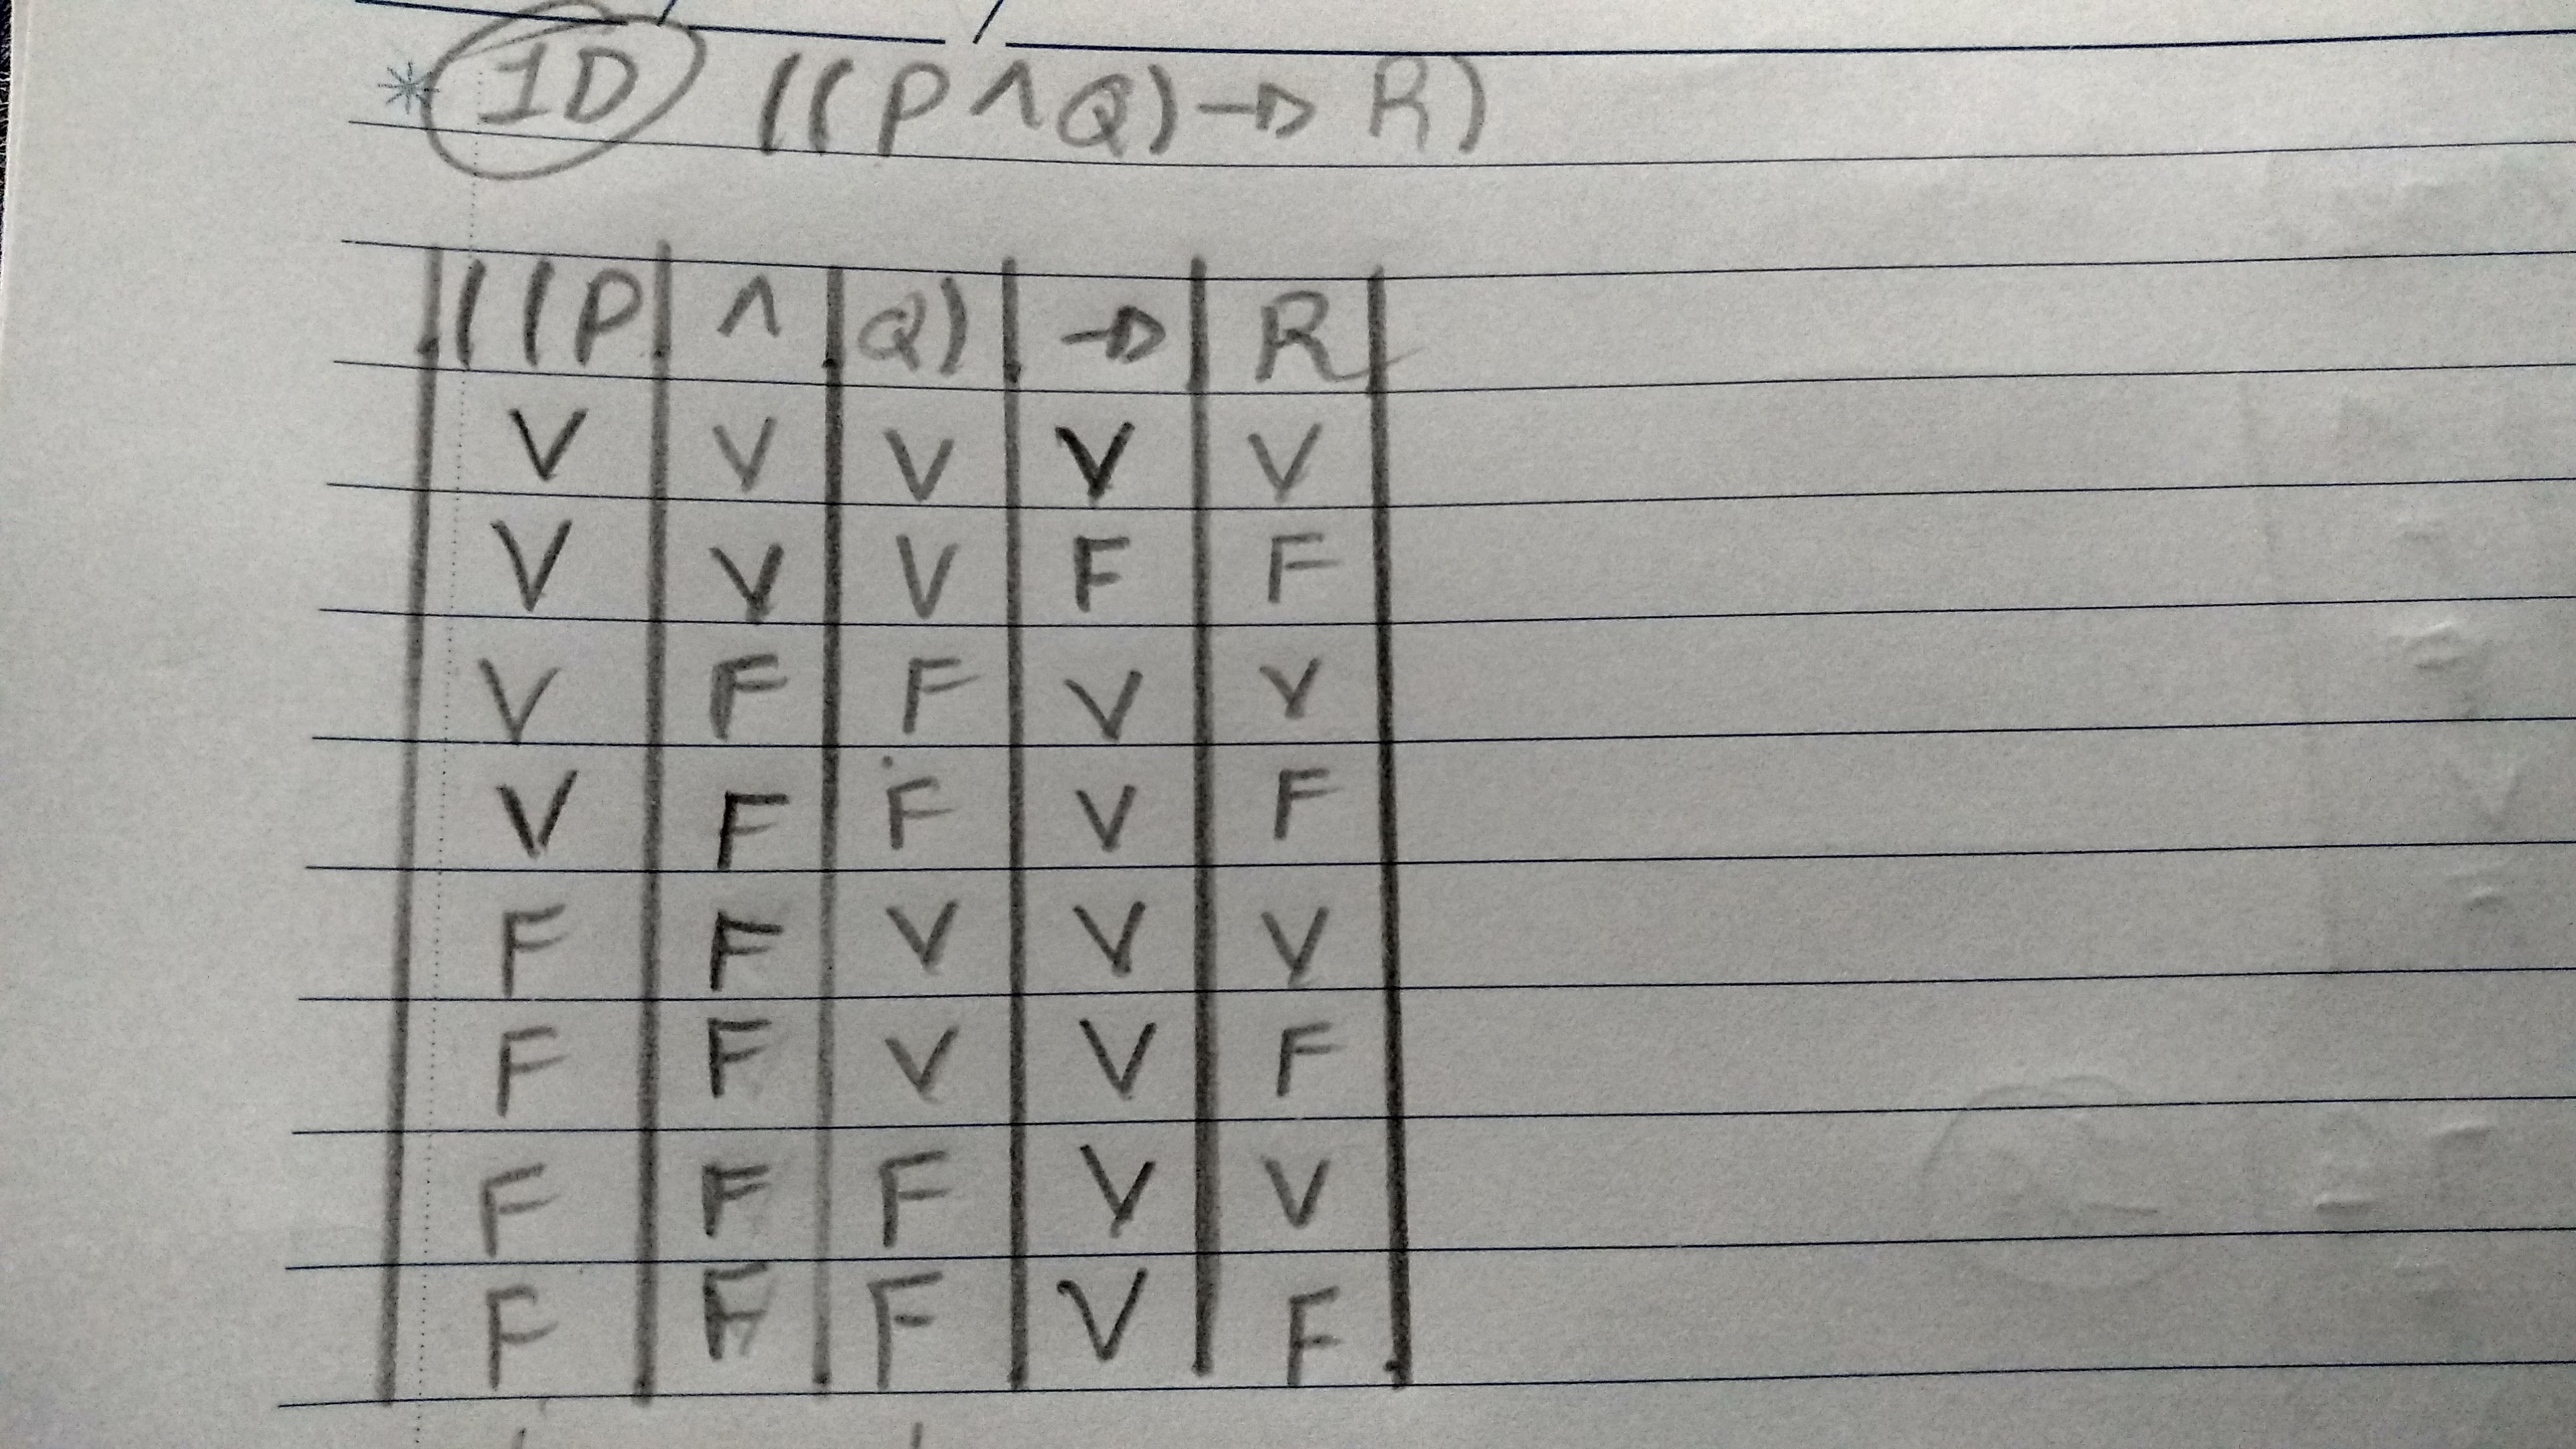 * 1D ((P ∧ Q) → R)
((P ∧ Q) → R
V V V V V
V V V F F
V F F V V
V F F V F
F F V V V
F F V V F
F F F V V
F F F V F